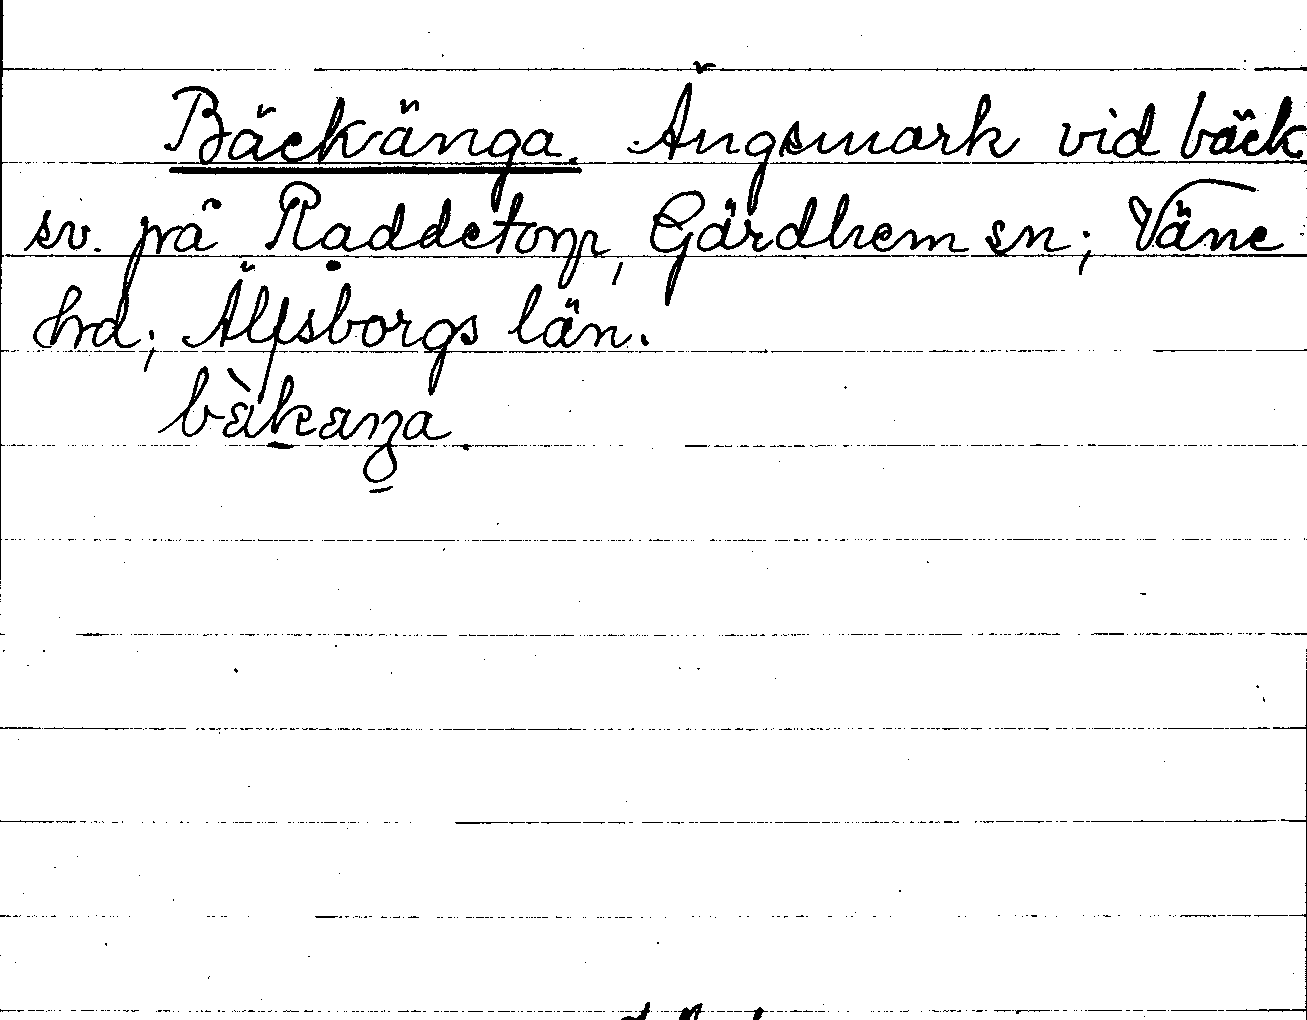 Bäckänga. Ängsmark vid bäck
sv. på Raddetorp, Gärdhem sn; Väne
hrd; Älfsborgs län.